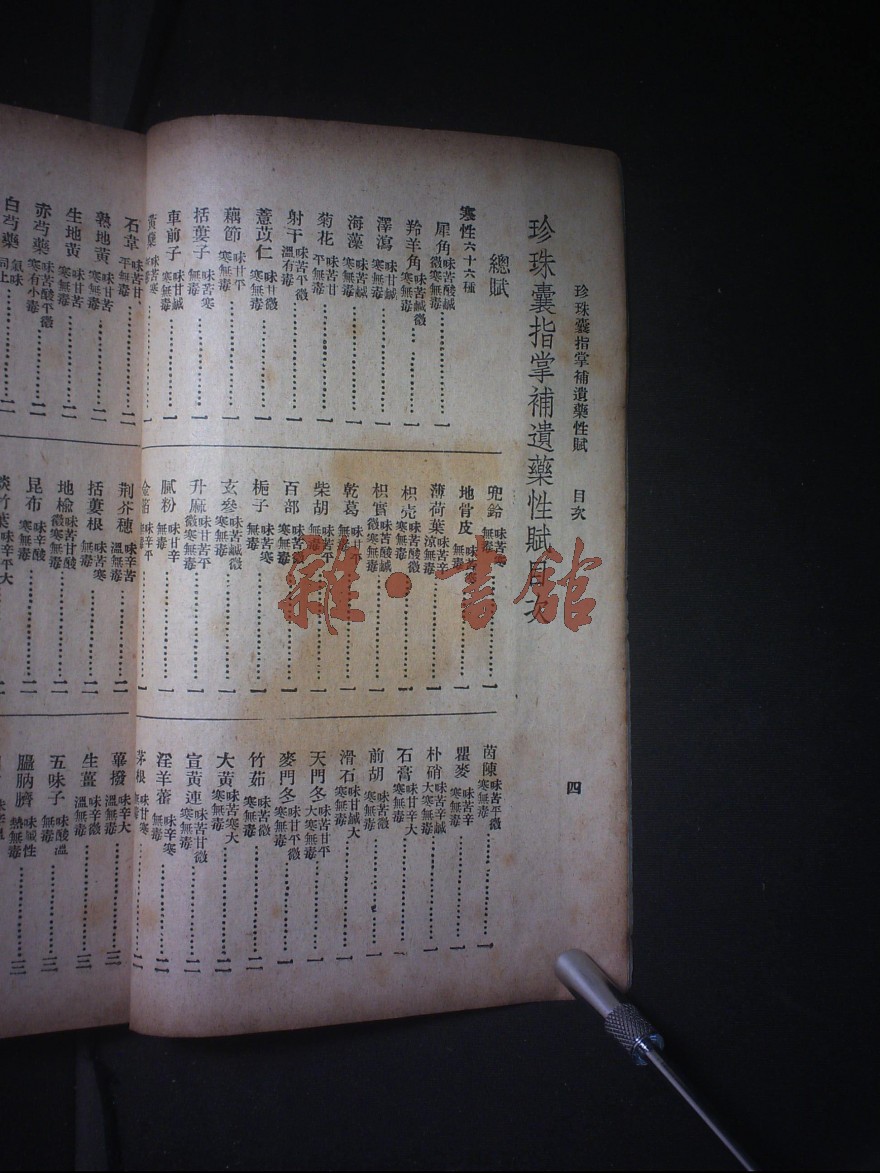 珍珠囊指掌補遺藥性賦 目次 四
珍珠囊指掌補遺藥性賦目次
總賦
寒性六十六種
犀角 味苦酸鹹微寒無毒 一
羚羊角 味苦鹹微寒無毒 一
澤瀉 味甘鹹寒無毒 一
海藻 味苦鹹寒無毒 一
菊花 味苦甘平無毒 一
射干 味苦平微溫有毒 一
薏苡仁 味甘微寒無毒 一
藕節 味甘平寒無毒 一
括蔞子 味苦寒無毒 一
車前子 味甘鹹寒無毒 一
黃蘗 味苦寒無毒 一
兜鈴 味苦寒無毒 一
地骨皮 味苦寒無毒 一
薄荷葉 味辛涼無毒 一
枳壳 味苦酸微寒無毒 一
枳實 味苦酸鹹微寒無毒 一
乾葛 味甘平無毒 一
柴胡 味苦平無毒 一
百部 味苦微寒無毒 一
梔子 味苦寒無毒 一
玄參 味苦鹹微寒無毒 一
升麻 味甘苦平微寒無毒 一
膩粉 味甘辛無毒 一
味辛平無毒 一
茵陳 味苦平微寒無毒 一
瞿麥 味苦辛寒無毒 一
朴硝 味苦辛鹹大寒無毒 一
石膏 味甘辛大寒無毒 一
前胡 味苦微寒無毒 一
滑石 味甘鹹大寒無毒 一
天門冬 味苦甘平大寒無毒 一
麥門冬 味甘平微寒無毒 一
竹茹 味苦微寒無毒 二
大黃 味苦寒大寒無毒 二
宣黃連 味苦甘微寒無毒 二
淫羊藿 味辛寒無毒 二
茅根 味甘寒無毒 二
石韋 味苦甘平無毒 二
熟地黃 味甘苦寒無毒 二
生地黃 味甘苦寒無毒 二
赤芍藥 味苦酸平微寒有小毒 二
白芍藥 氣味同上 二
荆芥穗 味辛苦溫無毒 二
括蔞根 味苦寒無毒 二
地楡 味苦甘酸微寒無毒 二
昆布 味辛酸寒無毒 二
淡竹葉 味辛平大寒無毒 二
蓽撥 味辛大溫無毒 三
生薑 味辛微溫無毒 三
五味子 味酸溫無毒 三
膃肭臍 味鹹性熱無毒 三
雜·書館